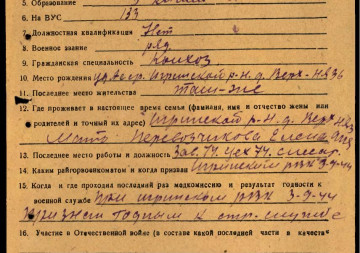 5. Образование
6. На ВУС 133
7. Должностная квалификация Нет
8. Военное звание ряд
9. Гражданская специальность Колхоз
10. Место рождения Игринской р-н. д. Верх-
11. Последнее место жительства Там-же
12. Где проживает в настоящее время семья (фамилия, имя и отчество жены или
родителей и точный их адрес) Игринской р-н. д. Верх
Мать Перевозчикова Елена
13. Последнее место работы и должность Зав. 74 цех 74. слесар.
14. Каким райгорвоенкоматом и когда призван Игринским РВК 3-9-44
15. Когда и где проходил последний раз медкомиссию и результат годности к
военной службе При игринском РВК 3-9-44
Признан годным к стр. службе
16. Участие в Отечественной войне (в составе какой последней части в качестве